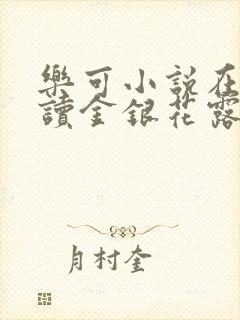 樂可小說在
讀金銀花露
月村奎